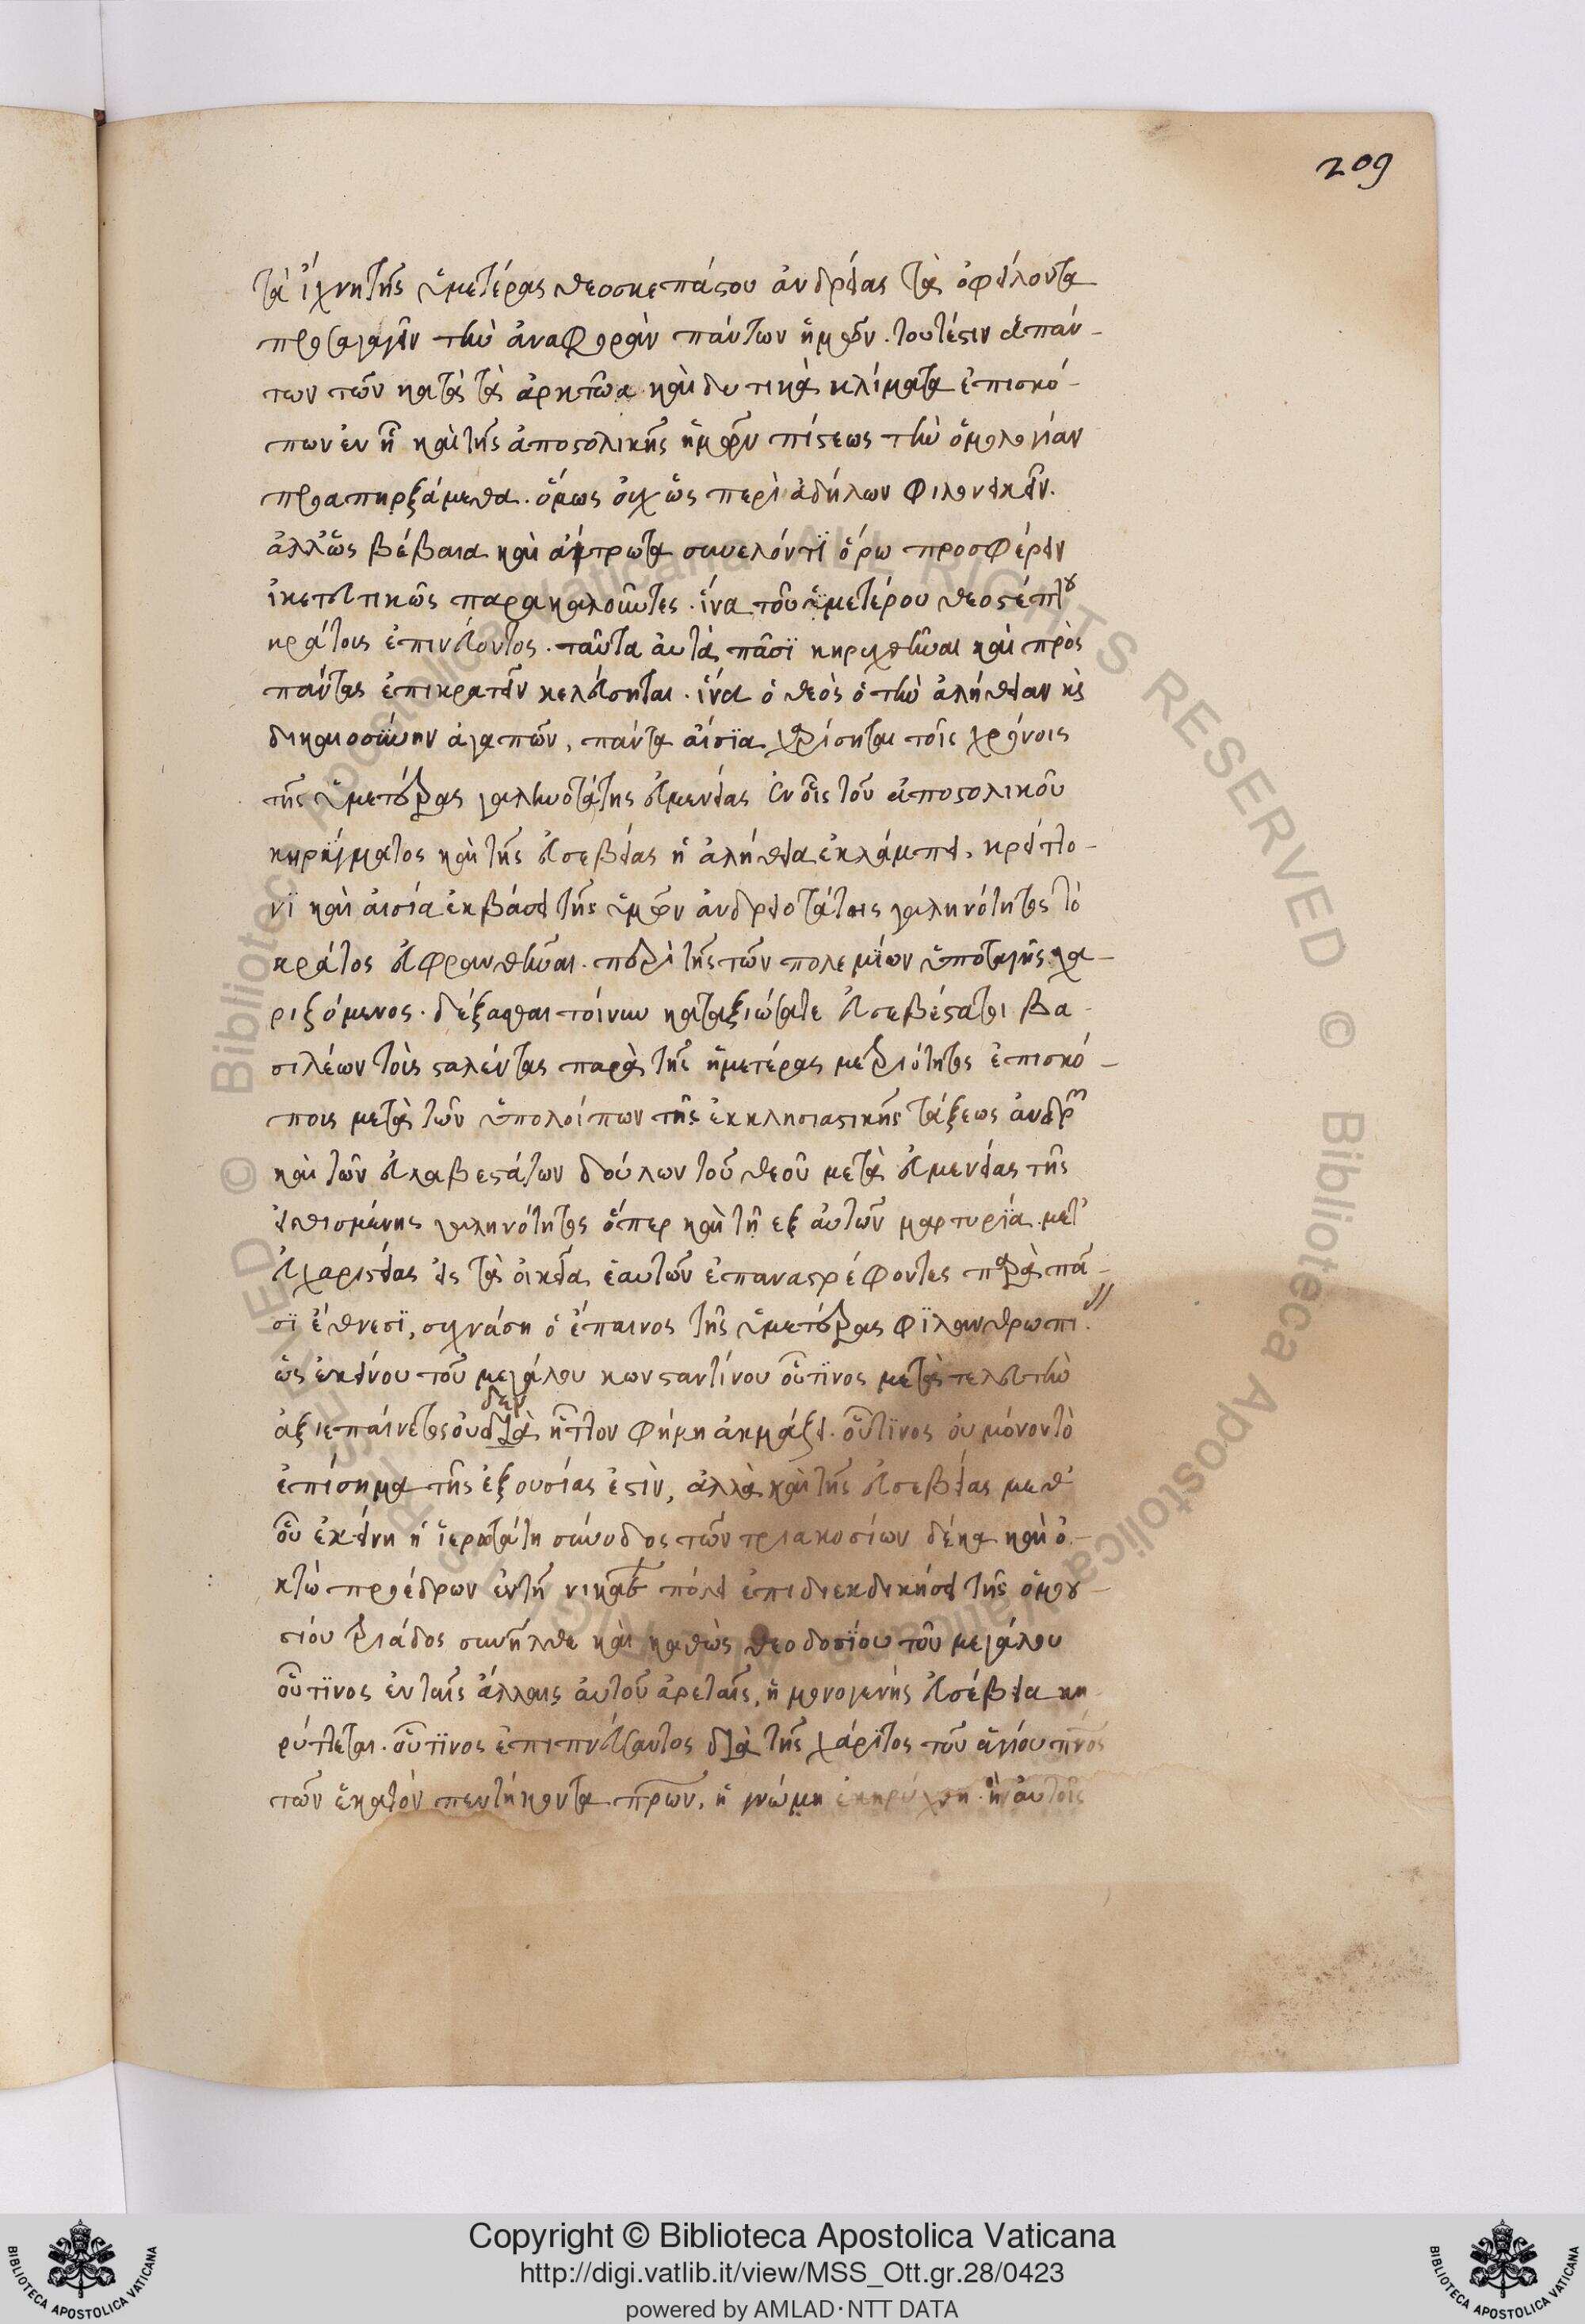 209
τὰ ἴχνη τῆς ὑμετέρας θεοσκεπάστου ἀνδρείας τὰ ὀφείλοντα
προσαγαγεῖν τὴν ἀναφορὰν πάντων ἡμῶν. τουτέστιν ἁπάν-
των τῶν κατὰ τὰ ἀρκτῶα καὶ δυτικὰ κλίματα ἐπισκό-
πων ἐν ᾗ καὶ τῆς ἀποστολικῆς ἡμῶν πίστεως τὴν ὁμολογίαν
προαπηρξάμεθα. ὅμως οὐχ ὡς περὶ ἀδήλων φιλονεικεῖν.
ἀλλ' ὡς βέβαια καὶ ἄτρωτα συνελόντϊ ὅρω προσφέρειν
ἱκετευτικῶς παρακαλοῦντες. ἵνα τοῦ ὑμετέρου θεοστέπτου
κράτους ἐπινεύοντος. ταῦτα αὐτὰ πᾶσϊ κηρυχθῆναι καὶ πρὸς
πάντας ἐπικρατεῖν κελεύσηται. ἵνα ὁ θεὸς ὁ τὴν ἀλήθειαν κὶ
δικαιοσύνην ἀγαπῶν, πάντα αἴσϊα χαρίσηται τοῖς χρόνοις
τῆς ὑμετέρας γαληνοτάτης εὐμενείας ἐν οἷς τοῦ ἀποστολικοῦ
κηρύγματος καὶ τῆς εὐσεβείας ἡ ἀλήθεια ἐκλάμπει. κρείττο-
νϊ καὶ αἰσία ἐκβάσει τῆς ὑμῶν ἀνδρειοτάτης γαληνότητος τὸ
κράτος εὐφρανθῆναι. περὶ τῆς τῶν πολεμΐων ὑποταγῆς χα-
ριζόμενος. δέξασθαι τοίνυν καταξιώσατε εὐσεβέστατοι βα-
σιλέων τοὺς σταλέντας παρὰ τῆς ἡμετέρας μετριότητος ἐπισκό-
πους μετὰ τῶν ὑπολοίπων τῆς ἐκκλησιαστικῆς τάξεως ἀνδρῶν
καὶ τῶν εὐλαβεστάτων δούλων τοῦ θεοῦ μετὰ εὐμενείας τῆς
εἰθισμένης γαληνότητος ὅπερ καὶ τῇ ἐξ αὐτῶν μαρτυρΐα. μετ'
εὐχαριστίας εἰς τὰ οἰκεῖα ἑαυτῶν ἐπαναστρέφοντες παρὰ πᾶ-
σϊ ἔθνεσϊ, συχνάση ὁ ἔπαινος τῆς ὑμετέρας φϊλανθρωπι.
ὡς ἐκείνου τοῦ μεγάλου κωνσταντίνου οὗτϊνος μετὰ τελευτὴν
ἀξιεπαίνετος οὐδὲν ἧττον φήμη ἀκμάζει. οὗτϊνος οὐ μόνον τὸ
ἐπίσημα τῆς ἐξουσίας ἐστὶν, ἀλλὰ καὶ τῆς εὐσεβείας μεθ'
οὗ ἐκείνη ἡ ἱερωτάτη σύνοδος τῶν τριακοσίων δέκα καὶ ὀ-
κτὼ προέδρων ἐν τῇ νικαέων πόλει ἐπιδιεκδικήσει τῆς ὁμου-
σίου τριάδος συνῆλθε καὶ καθὼς θεοδοσΐου τοῦ μεγάλου
οὗτϊνος ἐν ταῖς ἄλλαις αὐτοῦ ἀρεταῖς, ἡ μονογενὴς εὐσέβεια κη-
ρύττεται. οὗτϊνος ἐπιπνεύσαντος διὰ τῆς χάρϊτος τοῦ ἁγίου πνος
τῶν ἑκατὸν πεντήκοντα πρων, ἡ γνώμη ἐκηρύχθη. ἣ αὐτοῖς
Copyright © Biblioteca Apostolica Vaticana
http://digi.vatlib.it/view/MSS_Ott.gr.28/0423
powered by AMLAD·NTT DATA